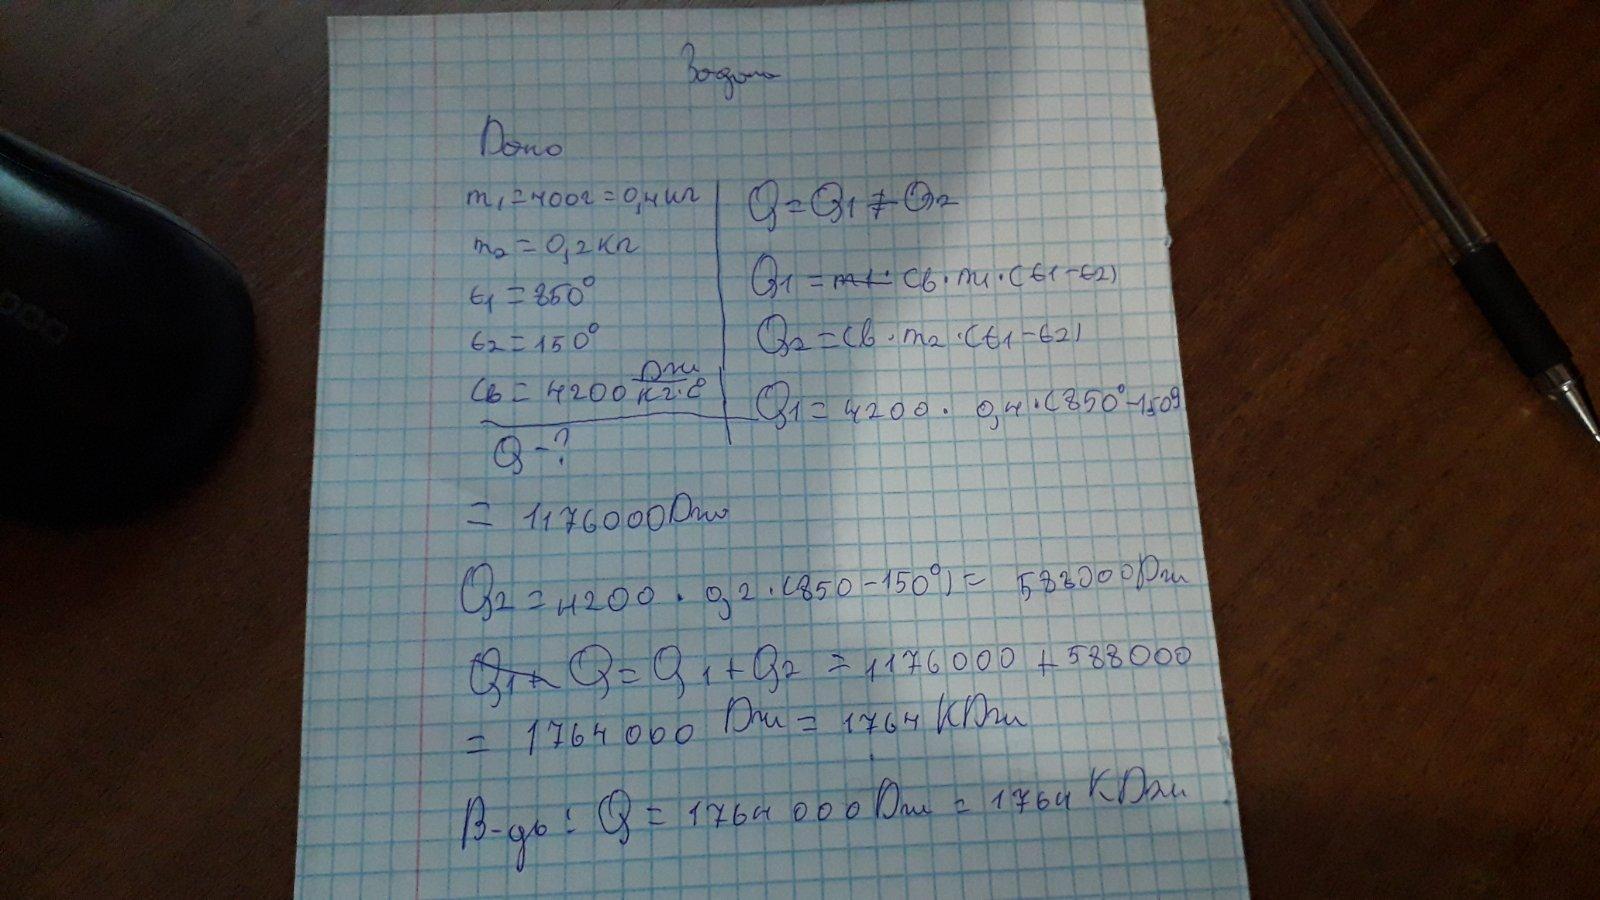 Задача
Дано
m₁=400г=0,4кг
m₂=0,2кг
t₁=850°
t₂=150°
Cв=4200 Дж/кг·С
Q-?
Q=Q₁+Q₂
Q₁=m₁· Cв·m₁·(t1-t2)
Q₂=Cв·m₂·(t1-t2)
Q₁=4200· 0,4·(850°-150°)
= 1176000Дж
Q₂=4200·0,2·(850-150°)= 588000Дж
Q₁+ Q=Q₁+Q₂=1176000+588000
= 1764000 Дж=1764 КДж
В-дь: Q=1764 000Дж=1764 КДж